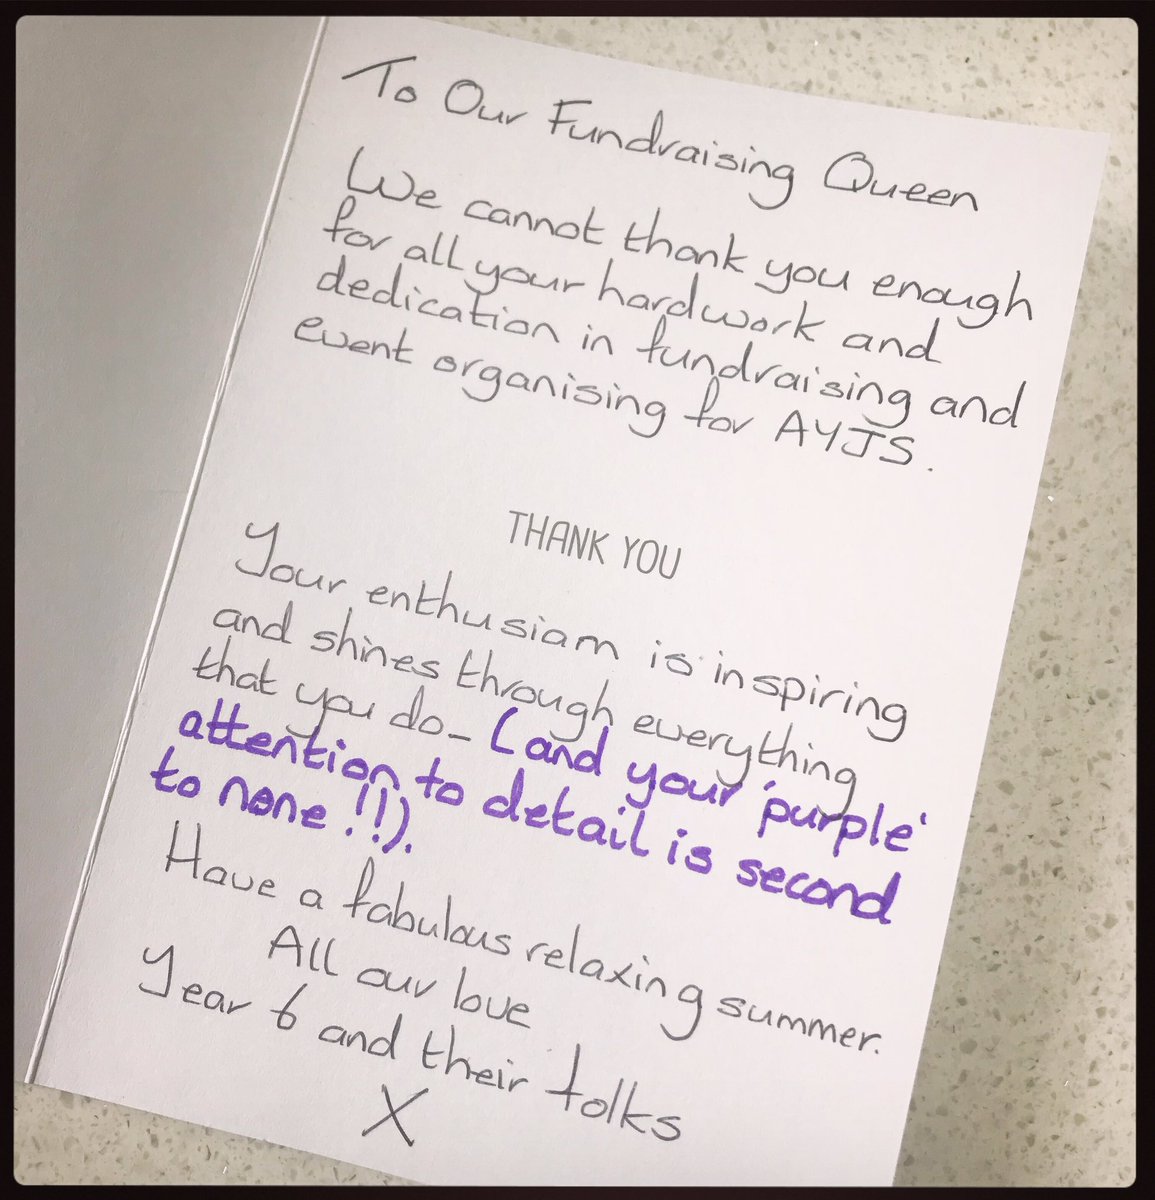 To Our Fundraising Queen
We cannot thank you enough
for all your hardwork and
dedication in fundraising and
event organising for AYJS.
THANK YOU
Your enthusiam is inspiring
and shines through everything
that you do_ (and your 'purple'
attention to detail is second
to none!!).
Have a fabulous relaxing summer.
All our love
Year 6 and their folks
X